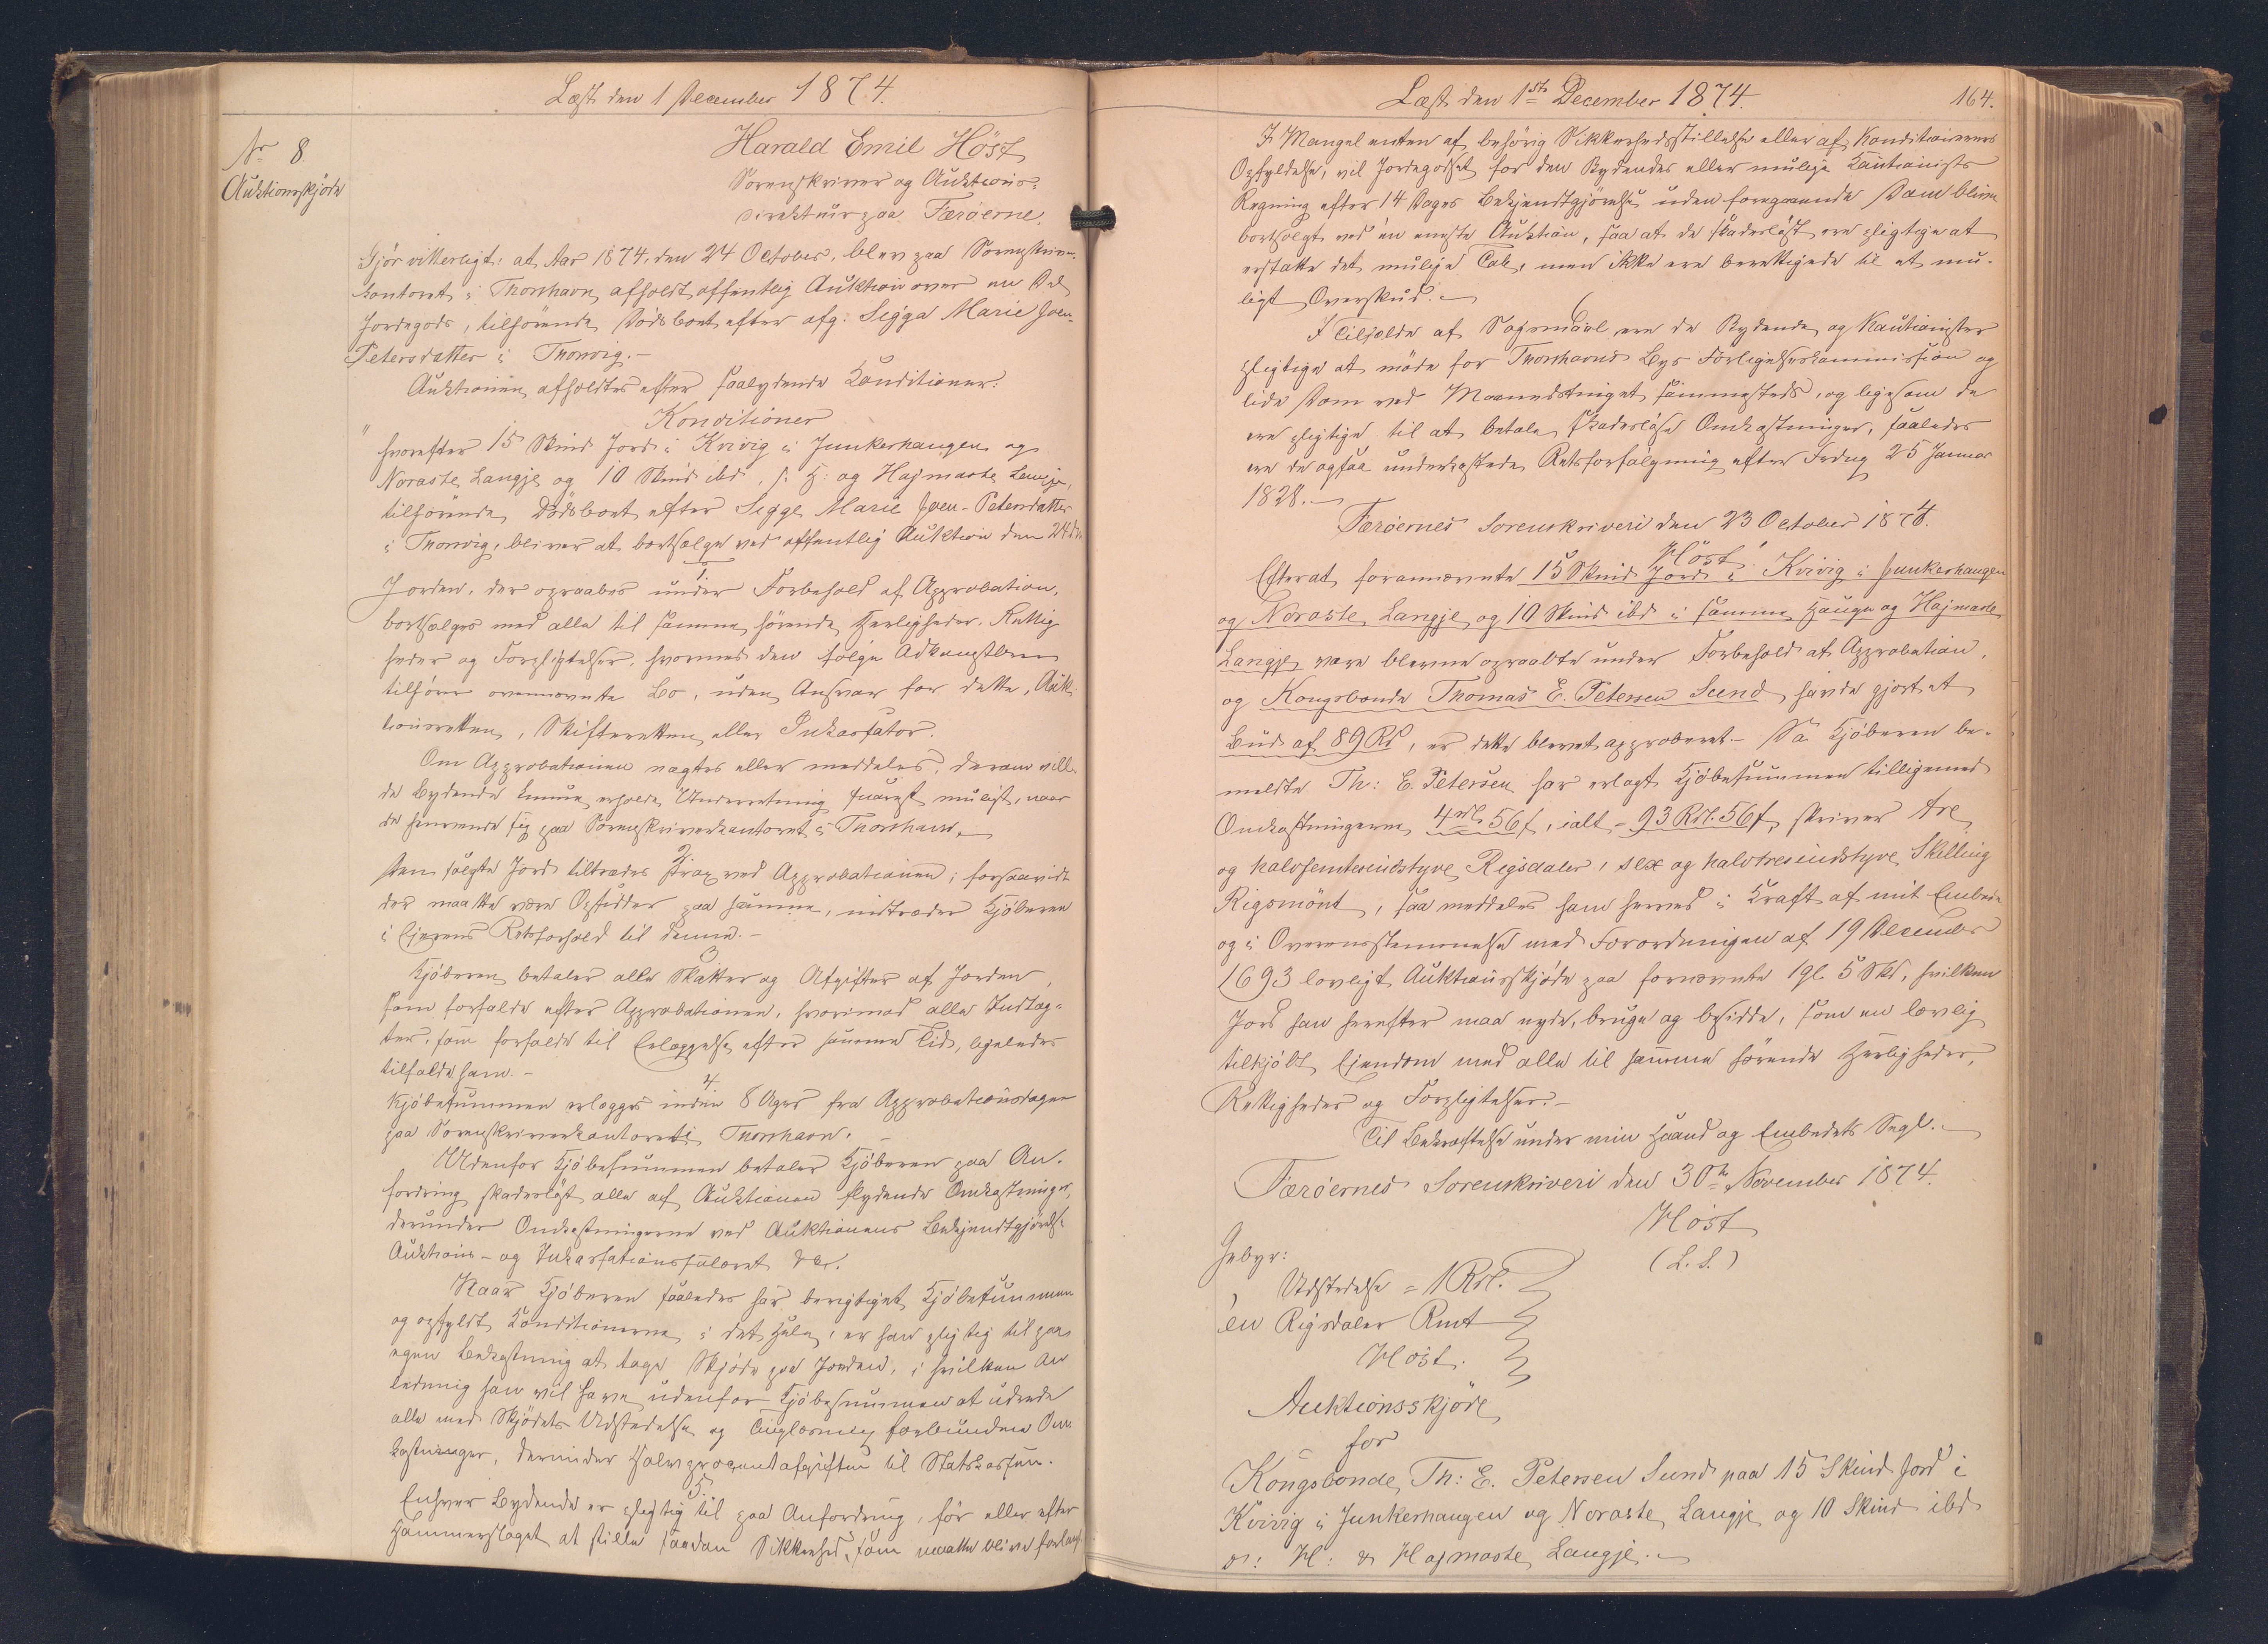 Læst den 1 December 1874.
No 8
Auktionsskjøde
Harald Emil Höst
Sorenskriver og Auktions-
direkteur paa Færöerne
Gjör vitterligt: at Aar 1874, den 24 October, blev paa Sorenskriver-
kontoret i Thorshavn afholdt offentlig Auktion over en Del
Jordegods, tilhörende Dödsboet efter afg: Sigga Marie Joen-
Petersdatter i Thorvig.-
Auktionen afholdtes efter saalydende Konditioner:
Konditioner
"hvorefter 15 Skind Jord i Kvivig i Junkerhaugen og
Noraste Langje og 10 Skind ibd, s. H: og Hajmaste Langje,
tilhörende Dödsboet efter Sigge Marie Joen-Petersdatter
i Thorvig, bliver at bortsælge ved offentlig Auktion den 24de
1.
Jorden, der opraabes under Forbehold af Approbation,
bortsælges med alle til samme hörende Herligheder, Rettig-
heder og Forpligtelser, hvormed den fölge Adkomstbrev
tilhörer ovennævnte Bo, uden Ansvar for dette, Auk-
tionsretten, Skifteretten eller Inkassator.
Om Approbationen nægtes eller meddeles, derom ville
de Bydende kunne erholde Underretning snarest muligt, naar
de henvende sig paa Sorenskriverkontoret i Thorshavn.
2.
Den solgte Jord tiltrædes strax ved Approbationen; forsaavidt
der maatte være Opsidder paa samme, indtræder Kjöberen
i Ejerens Retsforhold til denne.-
3
Kjöberen betaler alle Skatter og Afgifter af Jorden,
som forfalde efter Approbationen, hvorimod alle Indtæg-
ter, som forfalde til Erlæggelse efter samme Tid, ligeledes
tilfalde ham.-
4.
Kjöbesummen erlægges inden 8 Uger fra Approbationsdagen
paa Sorenskriverkontoret i Thorshavn.
Udenfor Kjöbesummen betaler Kjöberen paa An-
fordring skadeslöst alle af Auktionen flydende Omkostninger,
derunder Omkostningerne ved Auktionens Bekjendtgjörelse
Auktions- og Inkassationssalæret &c.
Naar Kjöberen saaledes har berigtiget Kjöbesummen
og opfyldt Konditionerne i det Hele, er han pligtig til paa
egen Bekostning at tage Skjöde paa Jorden, i hvilken An-
ledning han vil have udenfor Kjöbesummen at udrede
alle med Skjödets Udstedelse og Tinglæsning forbundne Om-
kostninger, derunder Halvprocentafgiften til Statskassen.
5.
Enhver Bydende er pligtig til paa Anfordring, för eller efter
Hammerslaget at stille saadan Sikkerhed, som maatte blive forlangt
Læst den 1ste December 1874.
164.
I Mangel enten af behörig Sikkerhedsstillelse eller af Konditionernes
Opfyldelse, vil Jordegodset for den Bydendes eller mulige Kautionists
Regning efter 14 Dages Bekjendtgjörelse uden foregaaende Dom blive
bortsolgt ved én eneste Auktion, saa at de skadeslöst ere pligtige at
erstatte det mulige Tab, men ikke ere berettigede til et mu-
ligt Overskud.-
6
I Tilfælde af Sagsmaal ere de Bydende og Kautionister
pligtige at möde for Thorshavns Byes Forligelseskommission og
lide Dom ved Maanedstinget sammesteds, og ligesom de
ere pligtige til at betale skadeslöse Omkostninger, saaledes
ere de ogsaa underkastede Retsforfölgning efter Frdng 25 Januar
1828.-
Færöernes Sorenskriveri den 23 October 1874.
Höst"
Efterat forannævnte 15 Skind Jord i Kvivig i Junkerhaugen
og Noraste Langje og 10 Skind ibd i samme Hauge og Hajmaste
Langje vare blevne opraabte under Forbehold af Approbation,
og Kongsbonde Thomas E. Petersen Sund havde gjort et
Bud af 89 Rd, er dette blevet approberet.- Da Kjöberen be-
meldte Th: E. Petersen har erlagt Kjöbesummen tilligemed
Omkostningerne 4 rdl. 56 f, ialt - 93 Rdl. 56 f, skriver tre
og halvfemtesindstyve Rigsdaler, sex og halvtresindstyve Skilling
Rigsmönt, saa meddeles ham herved i Kraft af mit Embede
og i Overensstemmelse med Forordningen af 19 December
1693 lovligt Auktionsskjöde paa fornævnte 1 gl. 5 Skd, hvilken
Jord han herefter maa nyde, bruge og besidde, som en lovlig
tilkjöbt Ejendom med alle til samme hörende Herligheder,
Rettigheder og Forpligtelser.-
Til Bekræftelse under min Haand og Embedets Segl.-
Færöernes Sorenskriveri den 30te November 1874.
Höst
(L. S.)
Gebyr:
Udstedelse = 1 Rdl.
én Rigsdaler Rmt
Höst.
Auktionsskjöde
for
Kongsbonde, Th: E. Petersen Sund paa 15 Skind Jord i
Kvivig i Junkerhaugen og Noraste Langje og 10 Skind ibd
s: H: & Hajmaste Langje.-